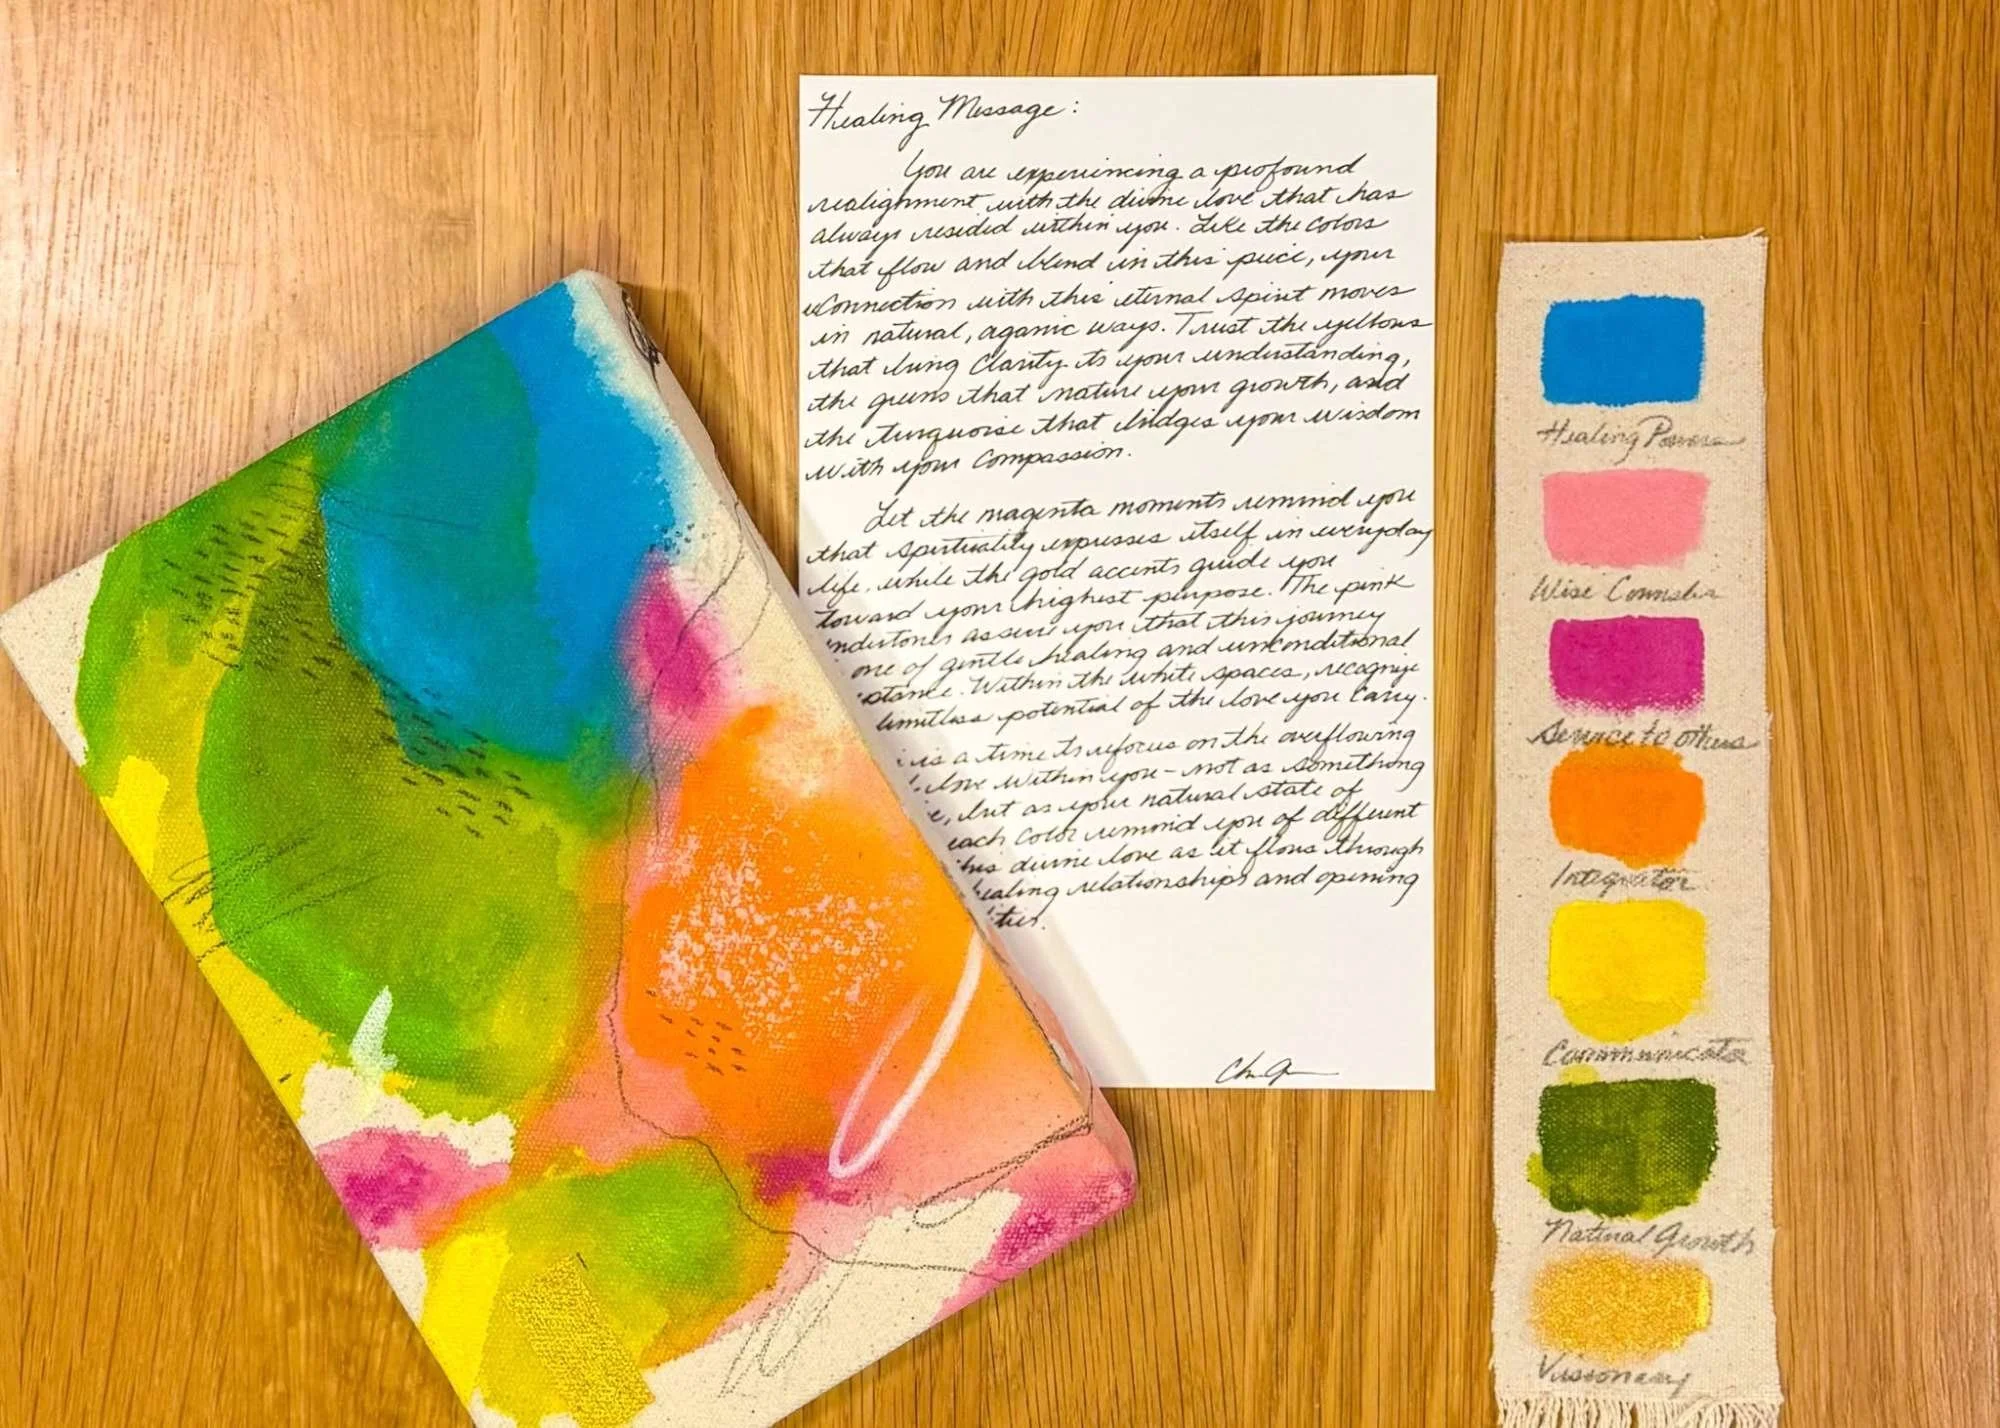 Healing Message:
You are experiencing a profound
realignment with the divine love that has
always resided within you. Like the colors
that flow and blend in this piece, your
connection with this eternal spirit moves
in natural, oganic ways. Trust the yellows
that bring Clarity to your understanding,
the greens that nature your growth, and
the turquoise that bridges your wisdom
with your compassion.
Let the magenta moments remind you
that spirtiuality expresses itself in everyday
life, while the gold accents guide you
toward your highest purpose. The pink
undertones assure you that this journey
one of gentle healing and unconditional
stance. Within the white spaces, recognize
limitless potential of the love you carry.
is a time to refocus on the overflowing
love within you - not as something
, but as your natural state of
each color remind you of different
this divine love as it flows through
healing relationships and opening
ities.
Healing Powers
Wise Counselor
Service to others
Integrator
Communicator
Natural Growth
Visionary